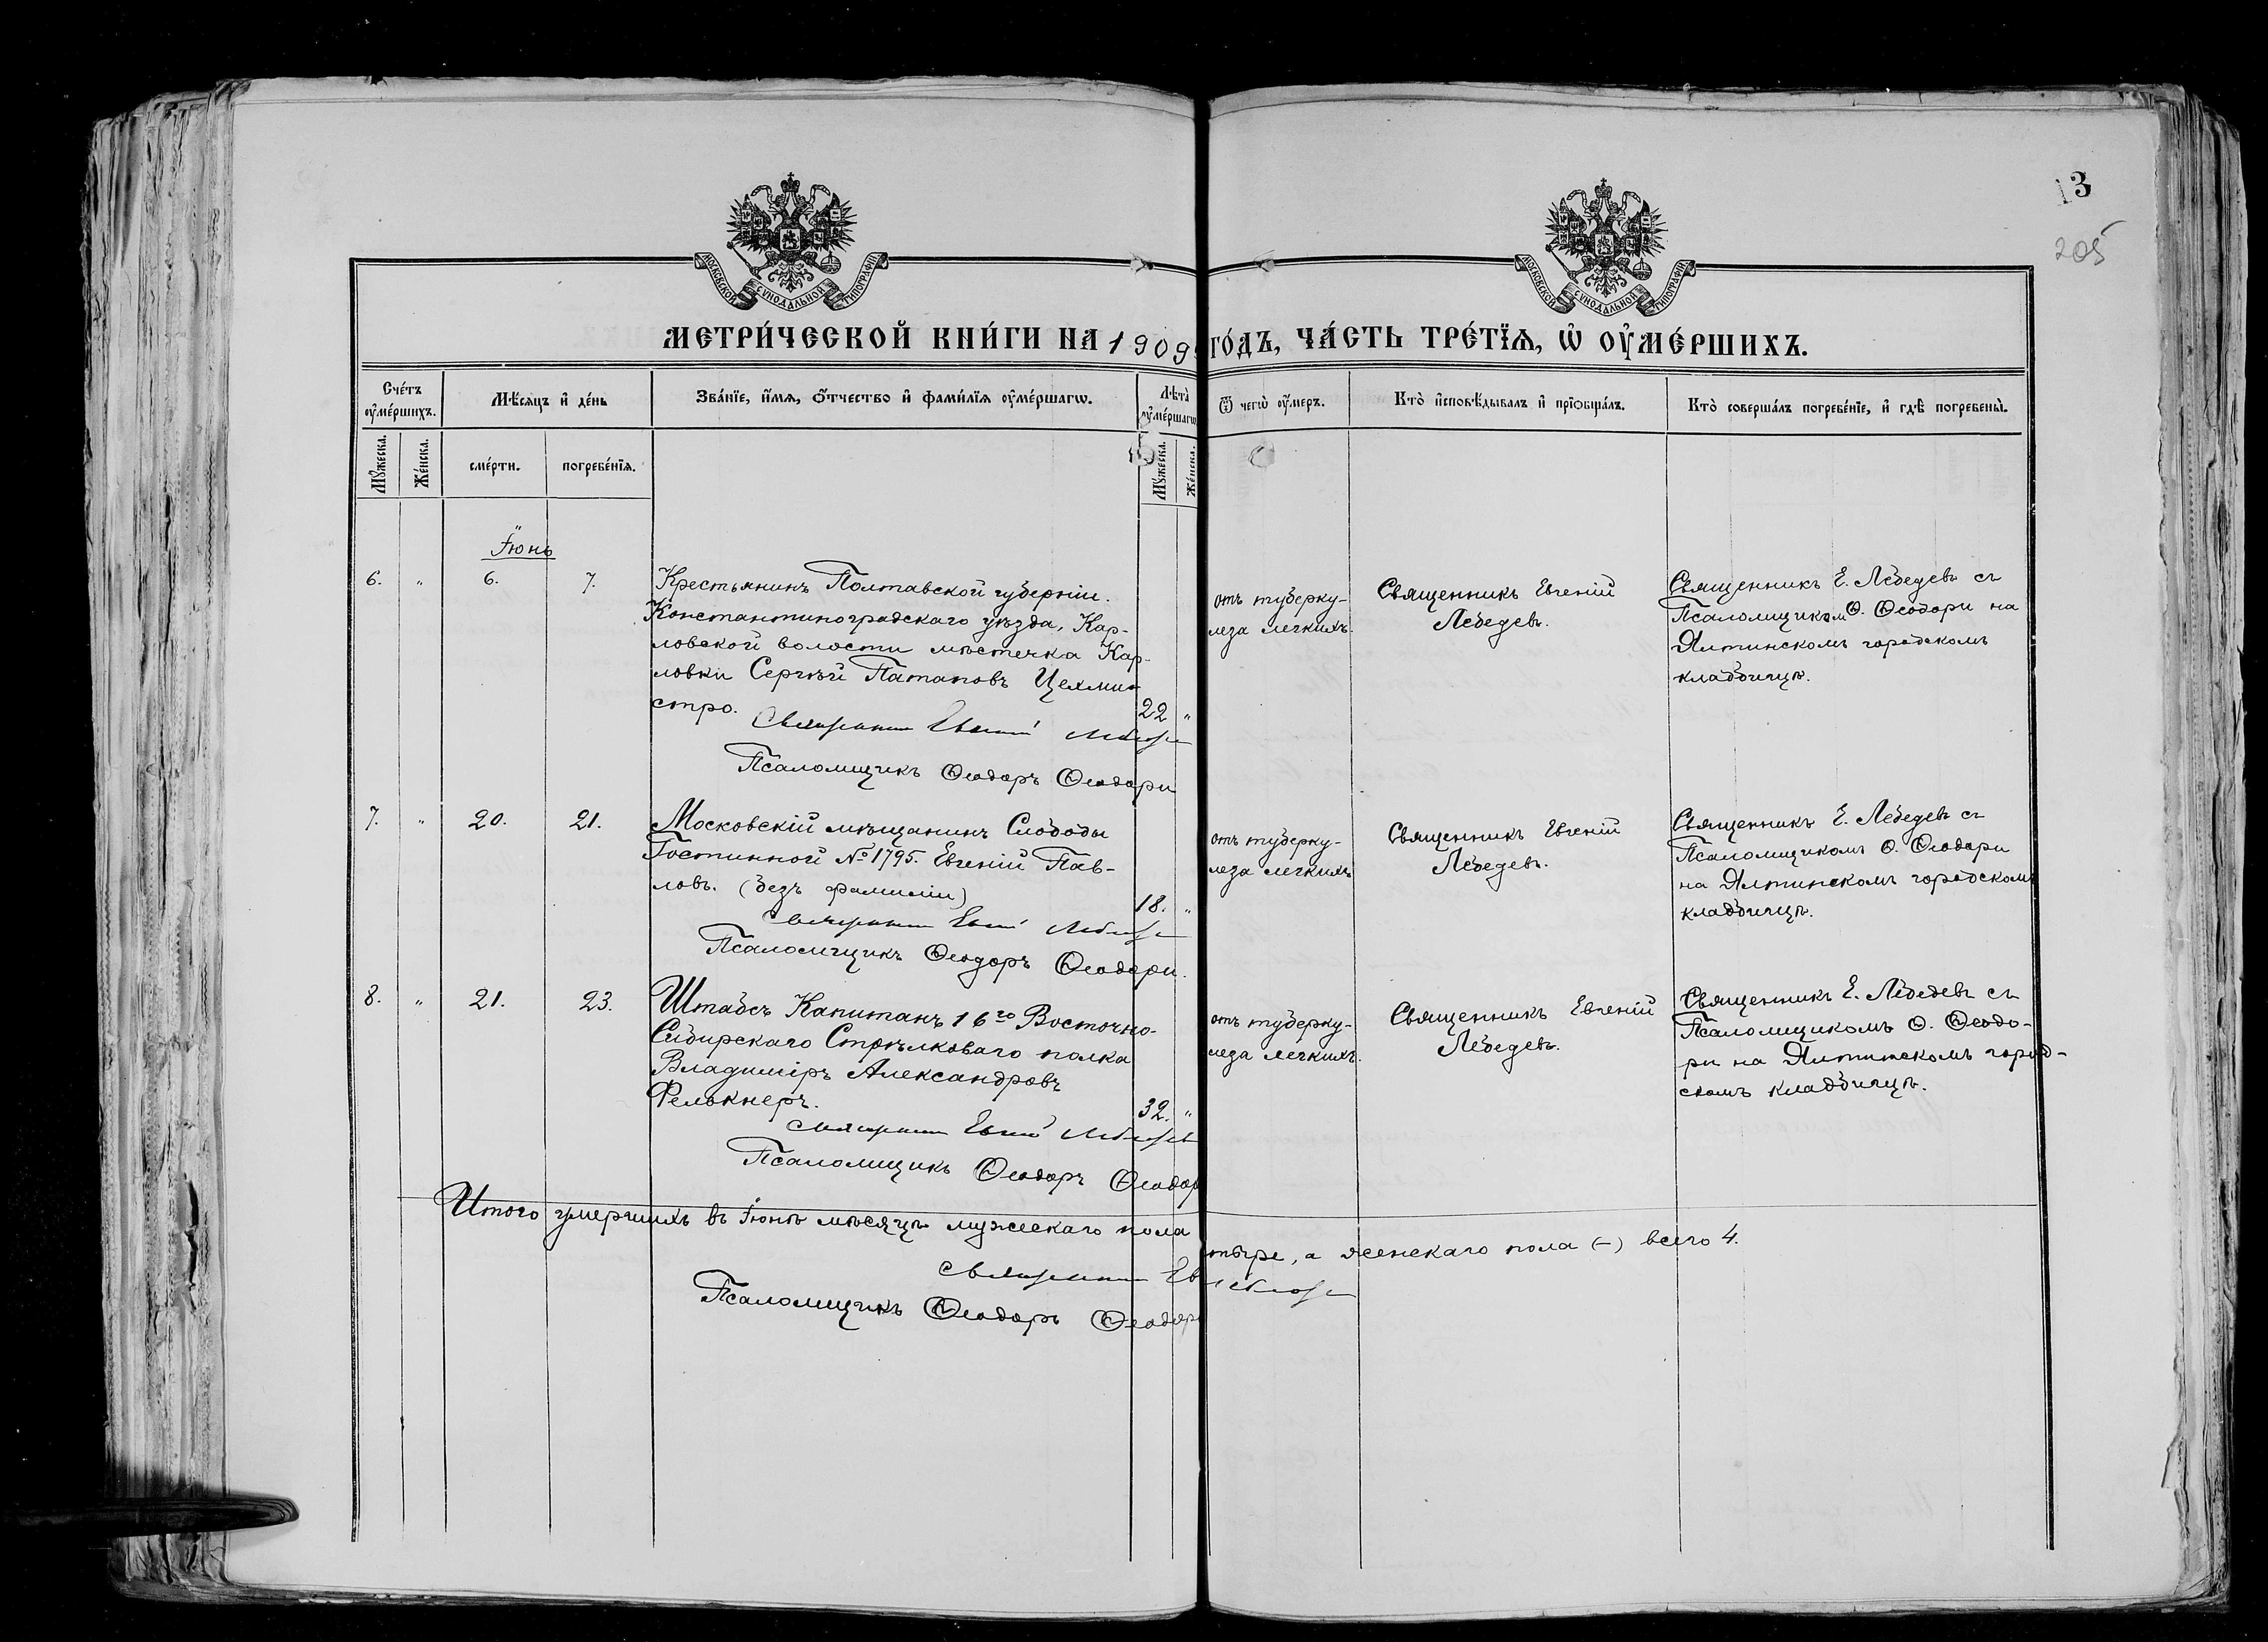 13
205
МОСКОВСКОЙ СѴНОДАЛЬНОЙ ТИПОГРАФІИ
МОСКОВСКОЙ СѴНОДАЛЬНОЙ ТИПОГРАФІИ
МЕТРИ́ЧЕСКОЙ КНИ́ГИ НА 1909 ГО́ДЪ, ЧА́СТЬ ТРЕ́ТЇѦ, Ѡ҆ ОУ҆МЕ́РШИХЪ.
Сче́тъ оу҆ме́ршихъ.
Мѣ́сѧцъ и҆ де́нь
Зва́нїе, и҆́мѧ, ѻ҆́тчество и҆ фами́лїѧ оу҆ме́ршагѡ.
Лѣ̀та̀ оу҆ме́ршагѡ
Ѿ чегѡ̀ оу҆́меръ.
Кто̀ и҆сповѣ́дывалъ и҆ прїѡбща́лъ.
Кто̀ соверша́лъ погребе́нїе, и҆ гдѣ̀ погребены̀.
Мꙋ́жеска.
Же́нска.
сме́рти.
погребе́нїѧ.
Мꙋ́жеска.
Же́нска.
Іюнь
6. " 6. 7.
Крестьянинъ Полтавской губерніи.
Константиноградскаго уѣзда, Кар-
ловской волости мѣстечка Кар-
ловки Сергѣй Патаповъ Цехми-
стро.
22 "
Священникъ Евгеній Лебедевъ
Псаломщикъ Ѳеодоръ Ѳеодори
отъ туберку-
леза легкихъ.
Священникъ Евгеній
Лебедевъ.
Священникъ Е. Лебедевъ съ
Псаломщикомъ Ѳ. Ѳеодори на
Ялтинскомъ городскомъ
кладбищѣ.
7. " 20. 21.
Московскій мѣщанинъ Слободы
Гостинной № 1795. Евгеній Пав-
ловъ. (безъ фамиліи)
18. "
Священникъ Евгеній Лебедевъ
Псаломщикъ Ѳеодоръ Ѳеодори.
отъ туберку-
леза легкихъ
Священникъ Евгеній
Лебедевъ.
Священникъ Е. Лебедевъ съ
Псаломщикомъ Ѳ. Ѳеодори
на Ялтинскомъ городскомъ
кладбищѣ.
8. " 21. 23.
Штабсъ Капитанъ 16го Восточно-
Сибирскаго Стрѣлковаго полка
Владиміръ Александровъ
Фелькнеръ.
32. "
Священникъ Евгеній Лебедевъ
Псаломщикъ Ѳеодоръ Ѳеодор
отъ туберку-
леза легкихъ.
Священникъ Евгеній
Лебедевъ.
Священникъ Е. Лебедевъ съ
Псаломщикомъ Ѳ. Ѳеодо-
ри на Ялтинскомъ город-
скомъ кладбищѣ.
Итого умершихъ въ Іюнѣ мѣсяцѣ мужескаго пола тыре, а женскаго пола (-) всего 4.
Священникъ Ев Лебедевъ
Псаломщикъ Ѳеодоръ Ѳеодор